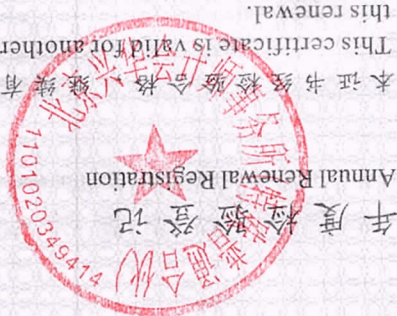 年度检验登记
Annual Renewal Registration
本证书经检验合格，继续有
This certificate is valid for another
this renewal.
北京兴华会计师事务所(特殊普通合伙)
1101020349414